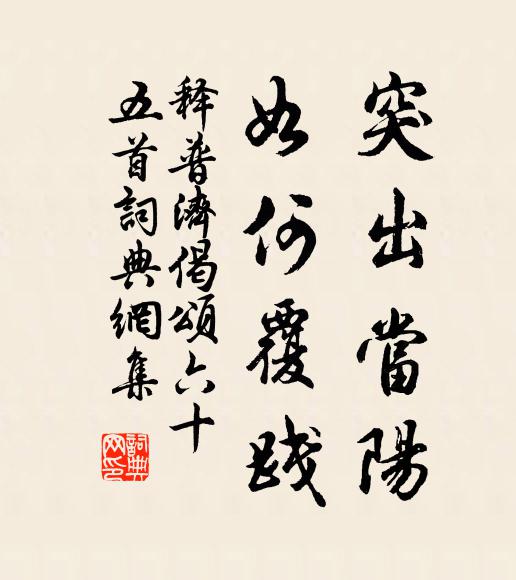 突出當陽
如何覆踐
释普濟偈頌六十
五首詞典網集
詞典網印